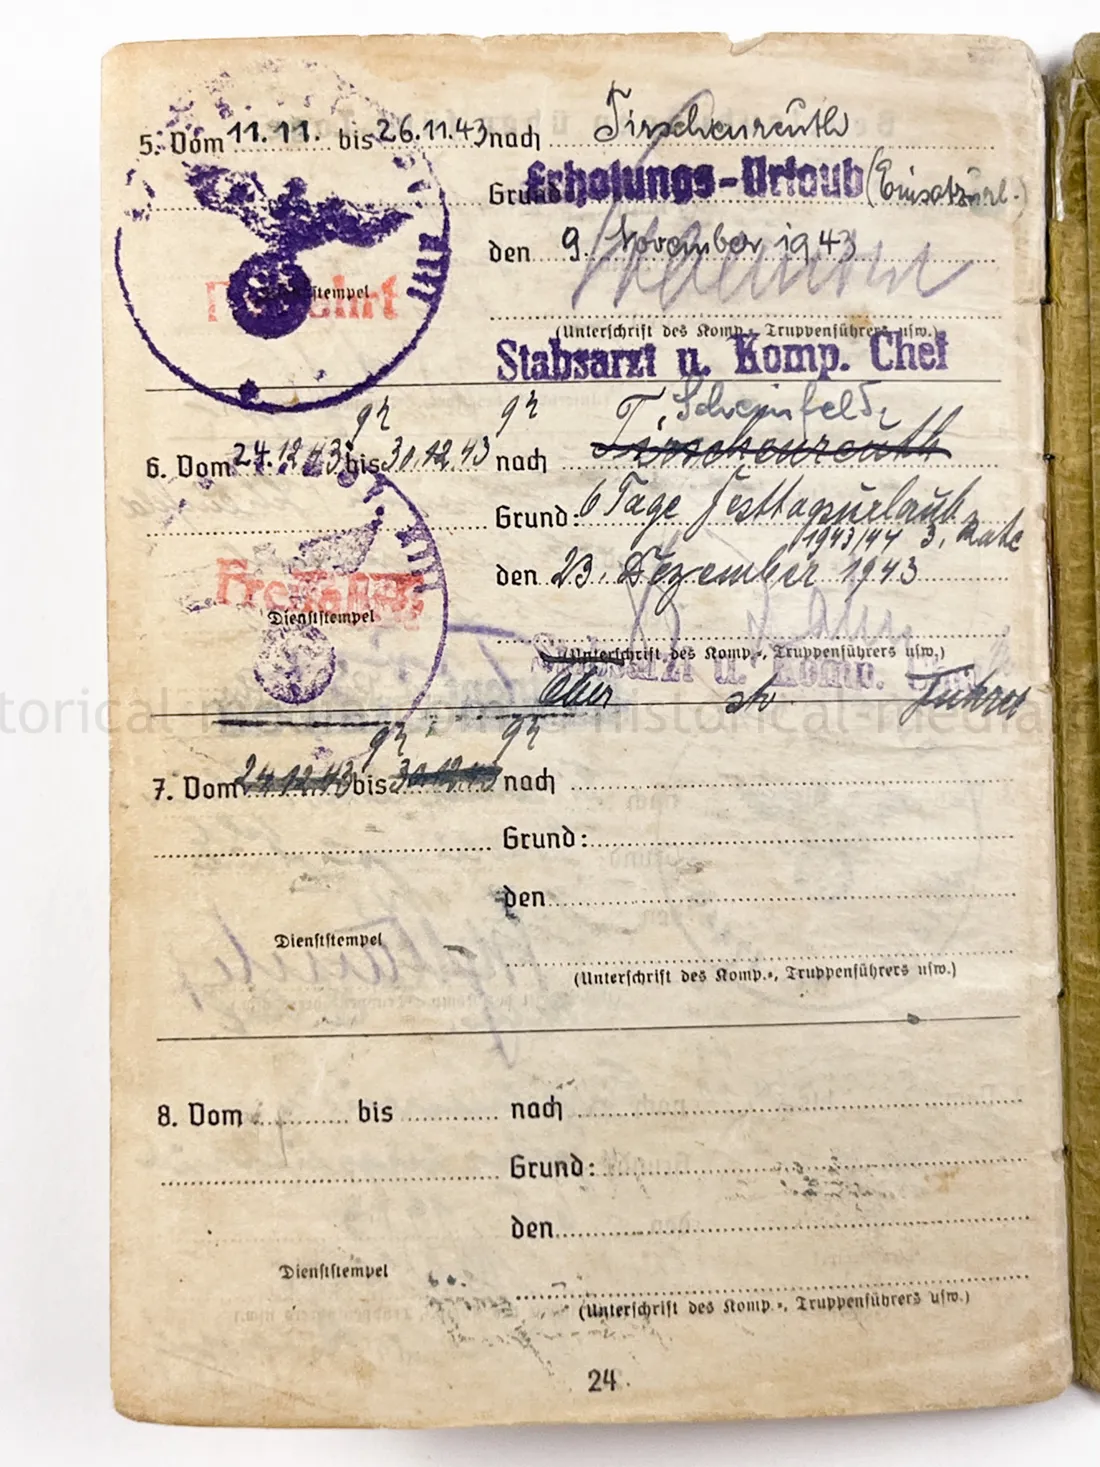 5. Vom 11.11. bis 26.11.43 nach Tirschenreuth
Grund: Erholungs-Urlaub (Einsatzurl.)
den 9. November 1943
Dienststempel
(Unterschrift des Komp.-, Truppenführers usw.)
Stabsarzt u. Komp. Chef
Scheinfeld
6. Vom 24.12.43 bis 30.12.43 nach Tirschenreuth
Grund: 6 Tage Festtagsurlaub
1943/44 3. Rate
den 23. Dezember 1943
Freifahrt
Dienststempel
(Unterschrift des Komp.-, Truppenführers usw.)
Stabsarzt u. Komp.
7. Vom 24.12.43 bis 30.12.43 nach
Grund:
den
Dienststempel
(Unterschrift des Komp.-, Truppenführers usw.)
8. Vom bis nach
Grund:
den
Dienststempel
(Unterschrift des Komp.-, Truppenführers usw.)
24